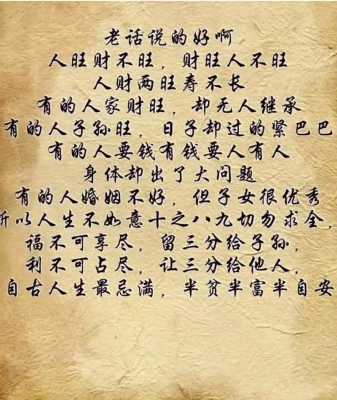 老话说的好啊
人旺财不旺，财旺人不旺
人财两旺寿不长
有的人家财旺，却无人继承
有的人子孙旺，日子却过的紧巴巴
有的人要钱有钱要人有人
身体却出了大问题
有的人婚姻不好，但子女很优秀
所以人生不如意十之八九切勿求全，
福不可享尽，留三分给子孙，
利不可占尽，让三分给他人，
自古人生最忌满，半贫半富半自安